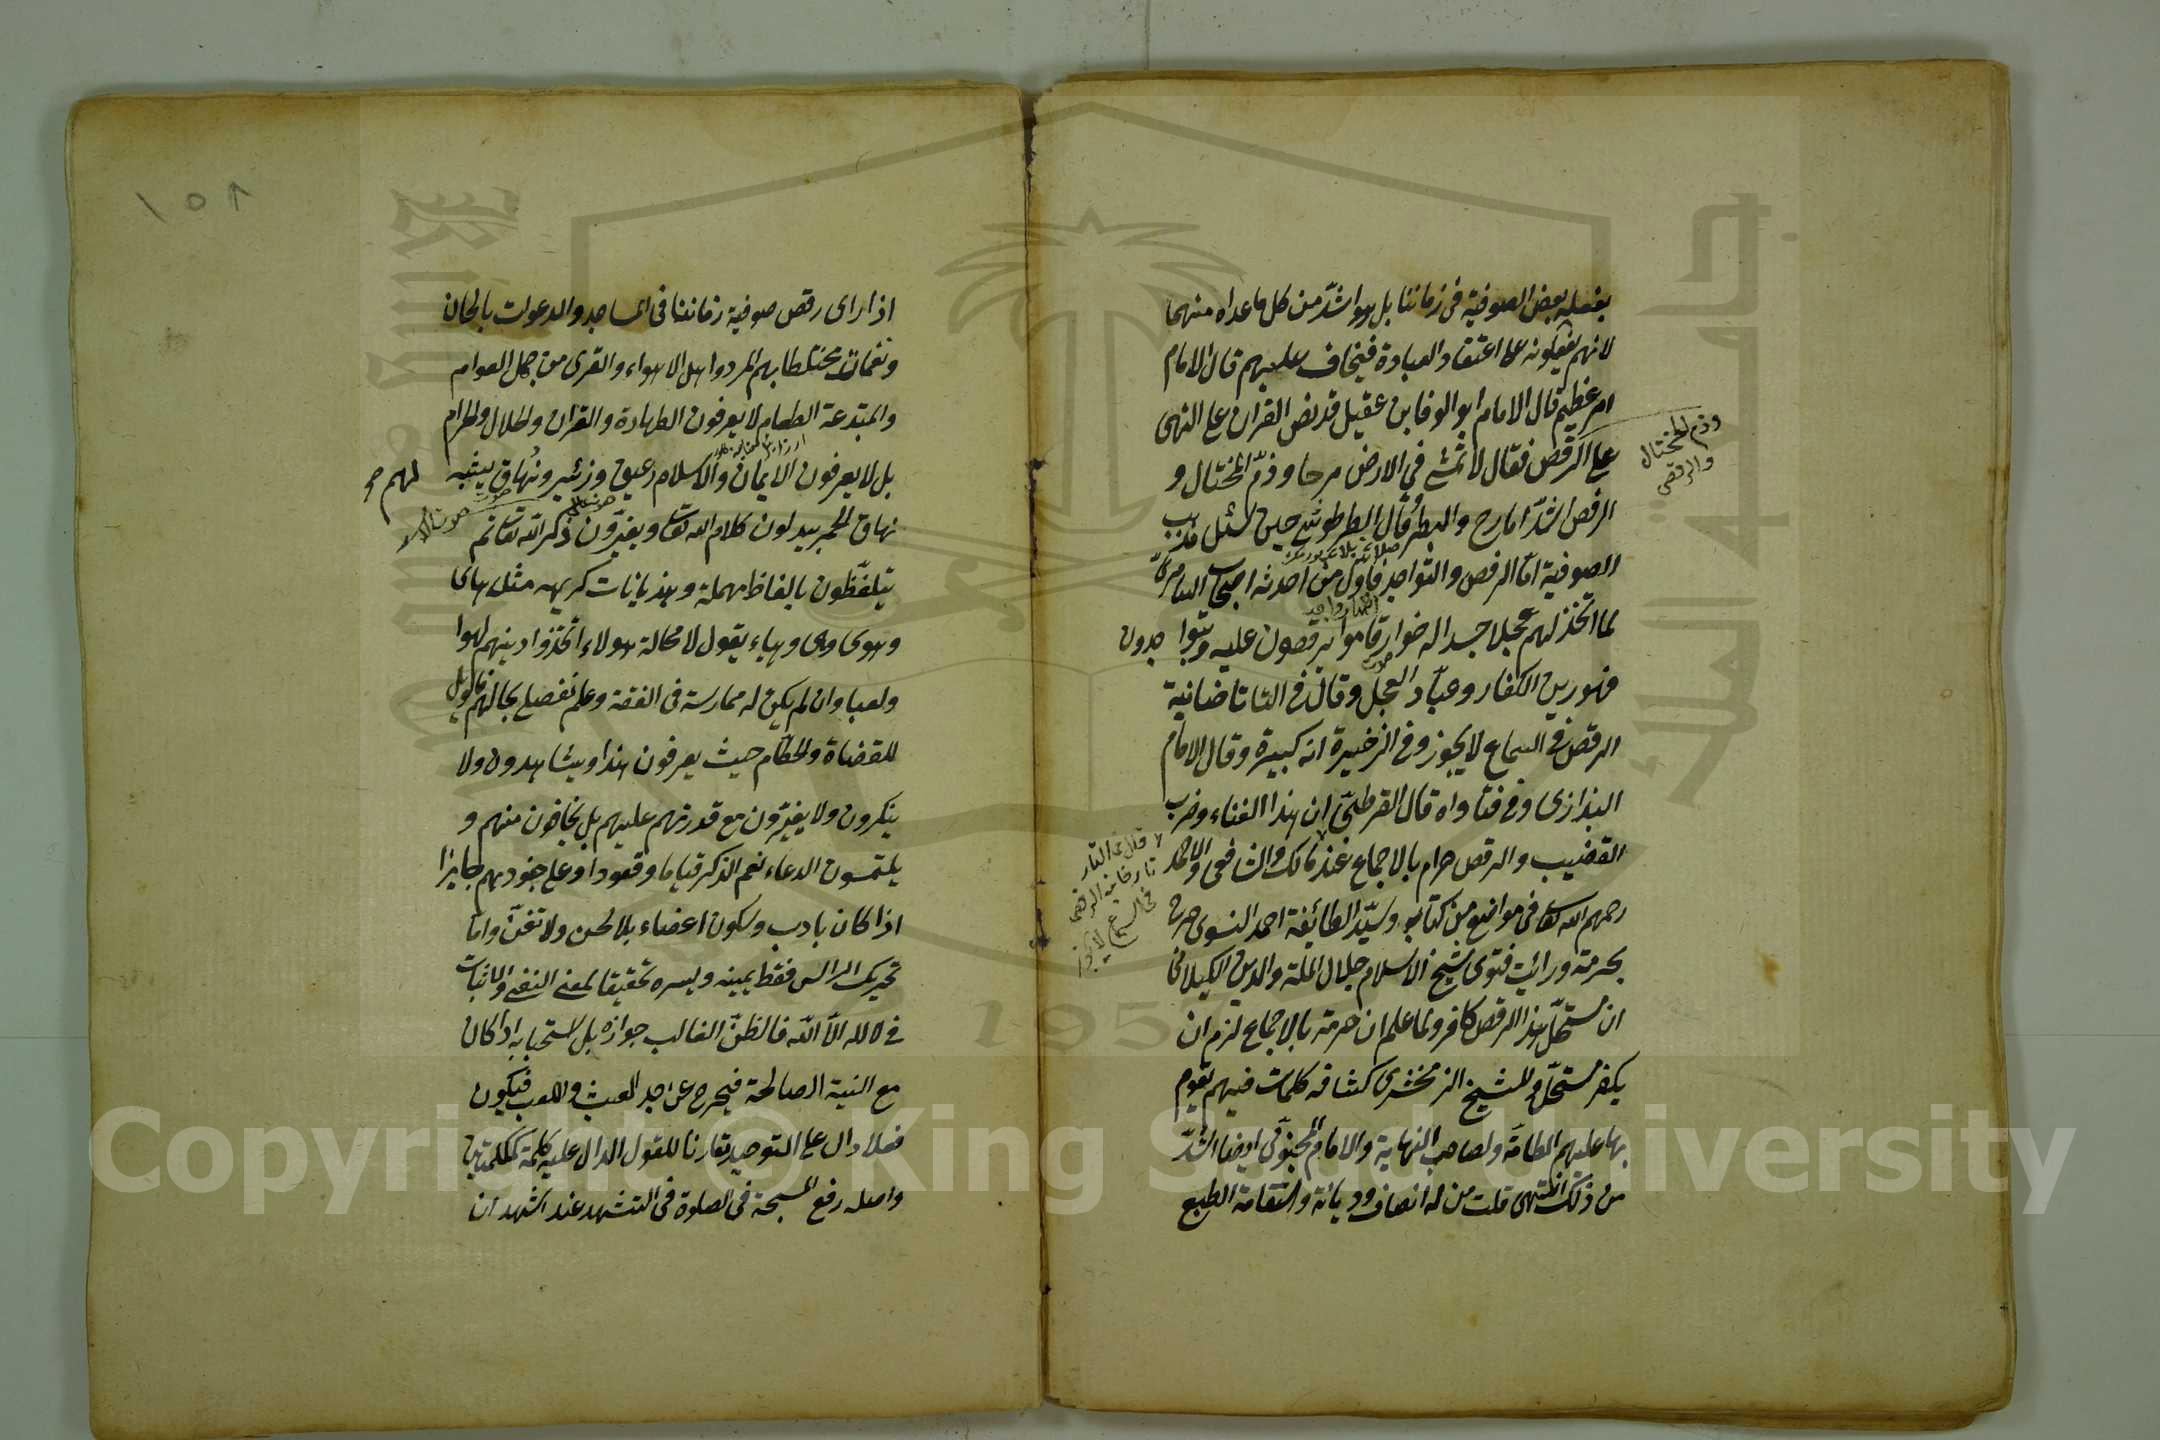 يفعله بعض الصوفية في زماننا بل هو اشدّ من كل ما عداه منهما
لانهم يفعلونه على اعتقاد العبادة فيخاف عليهم قال الامام
امر عظيم قال الامام ابو الوفا بن عقيل قد نص القران على النهى
على الرقص فقال لا تمش في الارض مرحا وذمّ المختال و
الرقص اشدّ المرح والبطر وقال الطرطوشى حين سئل مذهب
الصوفية امّا الرقص والتواجد فاول من احدثه اصحاب السامرىّ
لما اتخذ لهم عجلا جسدا له خوار قاموا يرقصون عليه ويتواجدون
فهو دين الكفار وعبّاد العجل وقال في التاتارخانية
الرقص في السماع لا يجوز وفي الذخيرة انه كبيرة وقال الامام
البزازى وفي فتاواه قال القرطبىّ ان هذا الغناء وضرب
القضيب والرقص حرام بالاجماع عند مالك والشافعى واحمد
رحمهم الله تعالى في مواضع من كتابه وسيّد الطائفة احمد النسوى صرح
بحرمته ورايت فتوى شيخ الاسلام جلال الملة والدين الكيلانى
ان مستحلّ هذا الرقص كافر ولما علم ان حرمته بالاجماع لزم ان
يكفر مستحلّه وللشيخ الزمخشرى كشافه كلمات فيهم تقوم
بها عليهم الطامّة ولصاحب النهاية والامام المحبوبى ايضا اشدّ
من ذلك انتهى قلت من له انصاف وديانة واستقامة الطبع
وذم المختال
والرقص
قال في التتار
تارخانية الرقص
في السماع لا يجوز
١٥١
اذا راى رقص صوفية زماننا في المساجد والدعوات بالحان
ونغمات مختلطا بهم المرد واهل الاهواء والقرى من جهل العوام
والمبتدعة الطغام لا يعرفون الطهارة والقران والحلال والحرام
بل لا يعرفون الايمان والاسلام زعيق وزئير ونهاق يشبه
نهاق الحمير يبدلون كلام الله تعالى ويغيّرون ذكر الله تعالى ثم
يتلفظون بالفاظ مهملة وهذيانات كريهه مثل هاى
وهوى وهى وهياء يقول لا محالة هولاء اتخذوا دينهم لهوا
ولعبا وان لم يكن له ممارسة في الفقه وعلم تفصيل بحالهم فالويل
للقضاة والحكام حيث يعرفون هذا ويشاهدون ولا
ينكرون ولا يغيّرون مع قدرتهم عليهم بل يخافون منهم و
يلتمسون الدعاء نعم الذكر قياما وقعودا وعلى جنوبهم جايز
اذا كان بادب وسكون اعضاء بلا لحن ولا تغنّ واما
تحريك الراس فقط يمينه ويسره تحقيقا لمعنى النفى والاثبات
في لا اله الا الله فالظنّ الغالب جوازه بل استحبابه اذا كان
مع النية الصالحة فيخرج عن حد العبث واللعب فيكون
فعلا دال على التوحيد مقارنا للقول الدال عليه كلمة كلمتين
واصله رفع المسبحة في الصلوة في التشهد عند اشهد ان
لهم